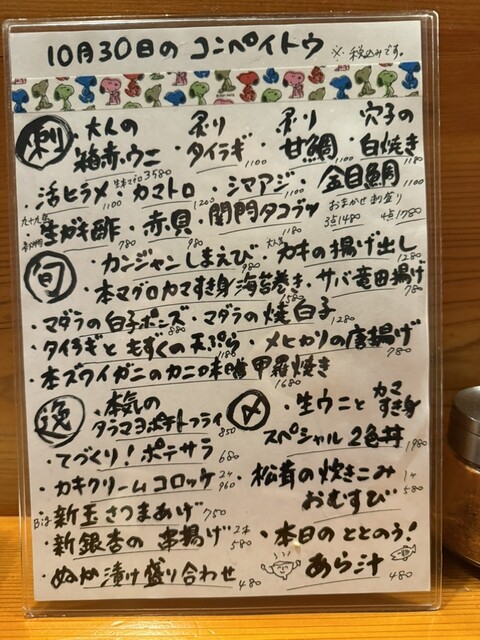 10月30日の コンペイトウ ※税込みです。
刺 ・大人の 炙り 炙り 穴子の
箱赤・ウニ ・タイラギ 1100 ・甘鯛 1100 ・白焼き 1180
・活ヒラメ 1100 ・カマトロ 1200 ・シマアジ 1100 ・金目鯛 1100
生ガキ酢 780 ・赤貝 980 ・関門タコブツ 1180 おまかせ刺盛り 3点1480 4点1780
旬 ・カンジャンしまえび 980 ・カキの揚げ出し 1280
・本マグロカマすき身海苔巻き 1580 ・サバ竜田揚げ 780
・マダラの白子ポンズ 880 ・マダラの焼白子 1280
・タイラギともずくの天ぷら 1180 ・メヒカリの唐揚げ 780
・本ズワイガニのカニ味噌甲羅焼き 1680
逸 ・本気の
タラマヨポテトフライ 850
・てづくり!ポテサラ 680
・カキクリームコロッケ 2ケ 960
・新玉さつまあげ 750
・新銀杏の串揚げ 2本 580
・ぬか漬け盛り合わせ 480
〆 ・生ウニとカマすき身
スペシャル2色丼 1980
・松茸の炊きこみ 1ケ
おむすび 580
・本日のととのう!
あら汁 480